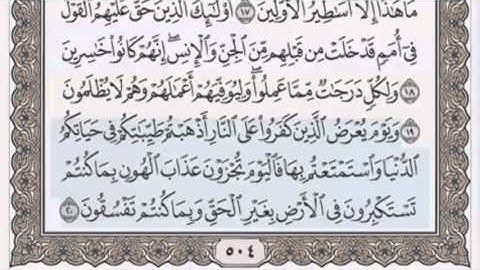 مَا هَٰذَا إِلَّا أَسَاطِيرُ الْأَوَّلِينَ ١٧ أُولَٰئِكَ الَّذِينَ حَقَّ عَلَيْهِمُ الْقَوْلُ
فِي أُمَمٍ قَدْ خَلَتْ مِن قَبْلِهِم مِّنَ الْجِنِّ وَالْإِنسِ ۖ إِنَّهُمْ كَانُوا خَاسِرِينَ
١٨ وَلِكُلٍّ دَرَجَاتٌ مِّمَّا عَمِلُوا ۖ وَلِيُوَفِّيَهُمْ أَعْمَالَهُمْ وَهُمْ لَا يُظْلَمُونَ
١٩ وَيَوْمَ يُعْرَضُ الَّذِينَ كَفَرُوا عَلَى النَّارِ أَذْهَبْتُمْ طَيِّبَاتِكُمْ فِي حَيَاتِكُمُ
الدُّنْيَا وَاسْتَمْتَعْتُم بِهَا فَالْيَوْمَ تُجْزَوْنَ عَذَابَ الْهُونِ بِمَا كُنتُمْ
تَسْتَكْبِرُونَ فِي الْأَرْضِ بِغَيْرِ الْحَقِّ وَبِمَا كُنتُمْ تَفْسُقُونَ ٢٠
٥٠٤